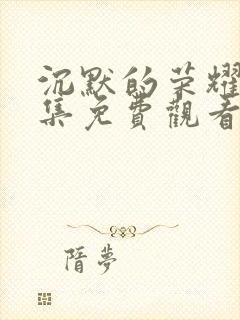 沉默的荣耀
集免費觀看
階夢